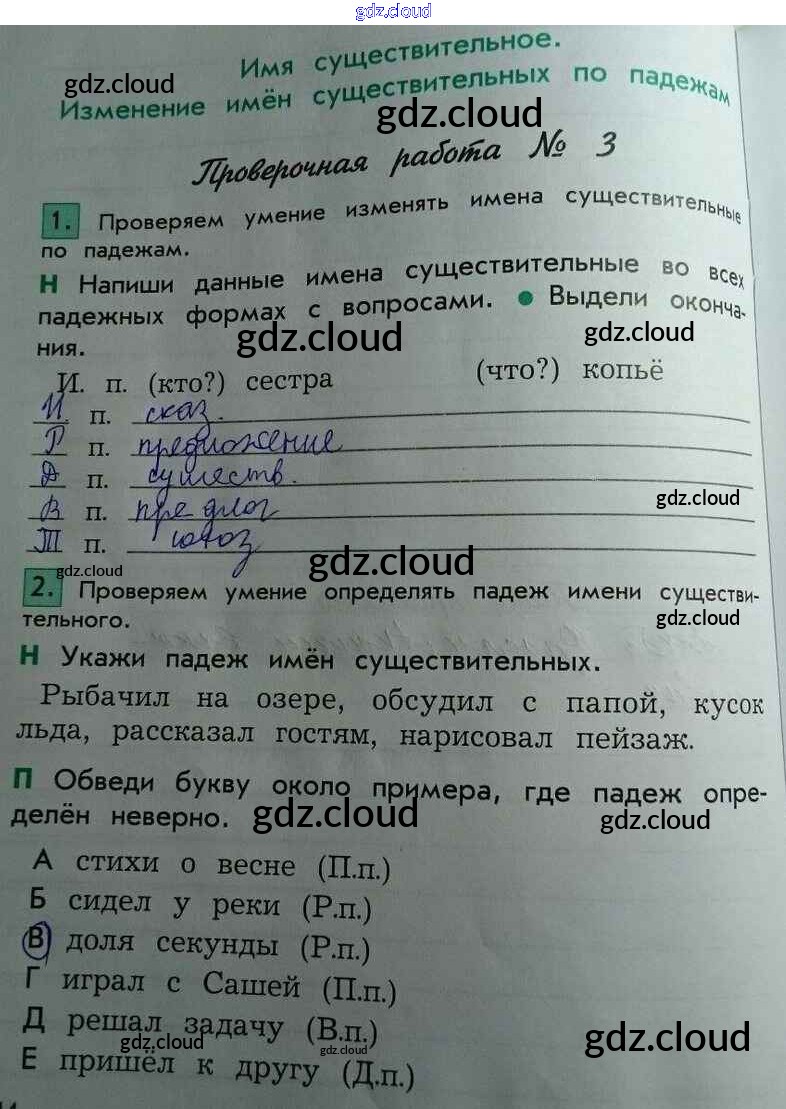 gdz.cloud
Имя существительное.
gdz.cloud
Изменение имён существительных по падежам
gdz.cloud
Проверочная работа № 3
1. Проверяем умение изменять имена существительные
по падежам.
Н Напиши данные имена существительные во всех
падежных формах с вопросами. ● Выдели оконча-
ния.
gdz.cloud gdz.cloud
И. п. (кто?) сестра (что?) копьё
И п. сказ.
Р п. предложение
Д п. существ.
В п. предлог
gdz.cloud
Т п.
gdz.cloud
gdz.cloud
2. Проверяем умение определять падеж имени существи-
тельного.
gdz.cloud
Н Укажи падеж имён существительных.
Рыбачил на озере, обсудил с папой, кусок
льда, рассказал гостям, нарисовал пейзаж.
П Обведи букву около примера, где падеж опре-
делён неверно.
gdz.cloud gdz.cloud
А стихи о весне (П.п.)
Б сидел у реки (Р.п.)
В доля секунды (Р.п.)
Г играл с Сашей (П.п.)
Д решал задачу (В.п.)
gdz.cloud gdz.cloud gdz.cloud
Е пришёл к другу (Д.п.)